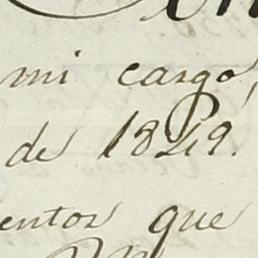 mi cargo,
de 1849.
entos que